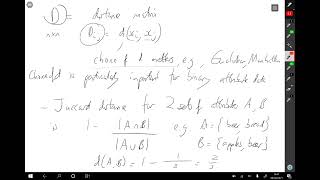 D = distance matrix
n×n D_ij = d(x_i, x_j)
choice of d matters, e.g. Euclidean, Manhattan
Choice of d is particularly important for binary attribute data
- Jaccard distance for 2 sets of attributes A, B
is 1 - |A∩B| / |A∪B| e.g. A = {beer, bread}
B = {apples, beer}
d(A,B) = 1 - 1/3 = 2/3